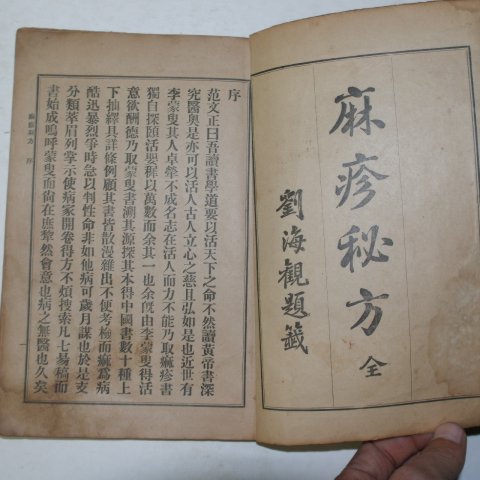 麻疹秘方 全
劉海觀題籤
序
范文正曰吾讀書學道要以活天下之命不然讀黃帝書深
究醫奧是亦可以活人古人立心之慈且弘如是也近世有
李蒙叟其人卓犖不成名志在活人而力不能乃取痲疹書
獨自探頤活嬰穉以萬數而余其一也余旣由李蒙叟得活
意欲酬德乃取蒙叟書溯其源探其本得中國書數十種上
下抽繹具詳條例顧其書皆散漫雜出不便考檢而痲爲病
酷迅暴烈爭時急以判性命非如他病可歲月謀也於是支
分類萃眉列掌示使病家開卷得方不煩搜索凡七易稿而
書始成嗚呼蒙叟而尙在庶犂然會意也病之無醫也久矣
麻疹秘方 序